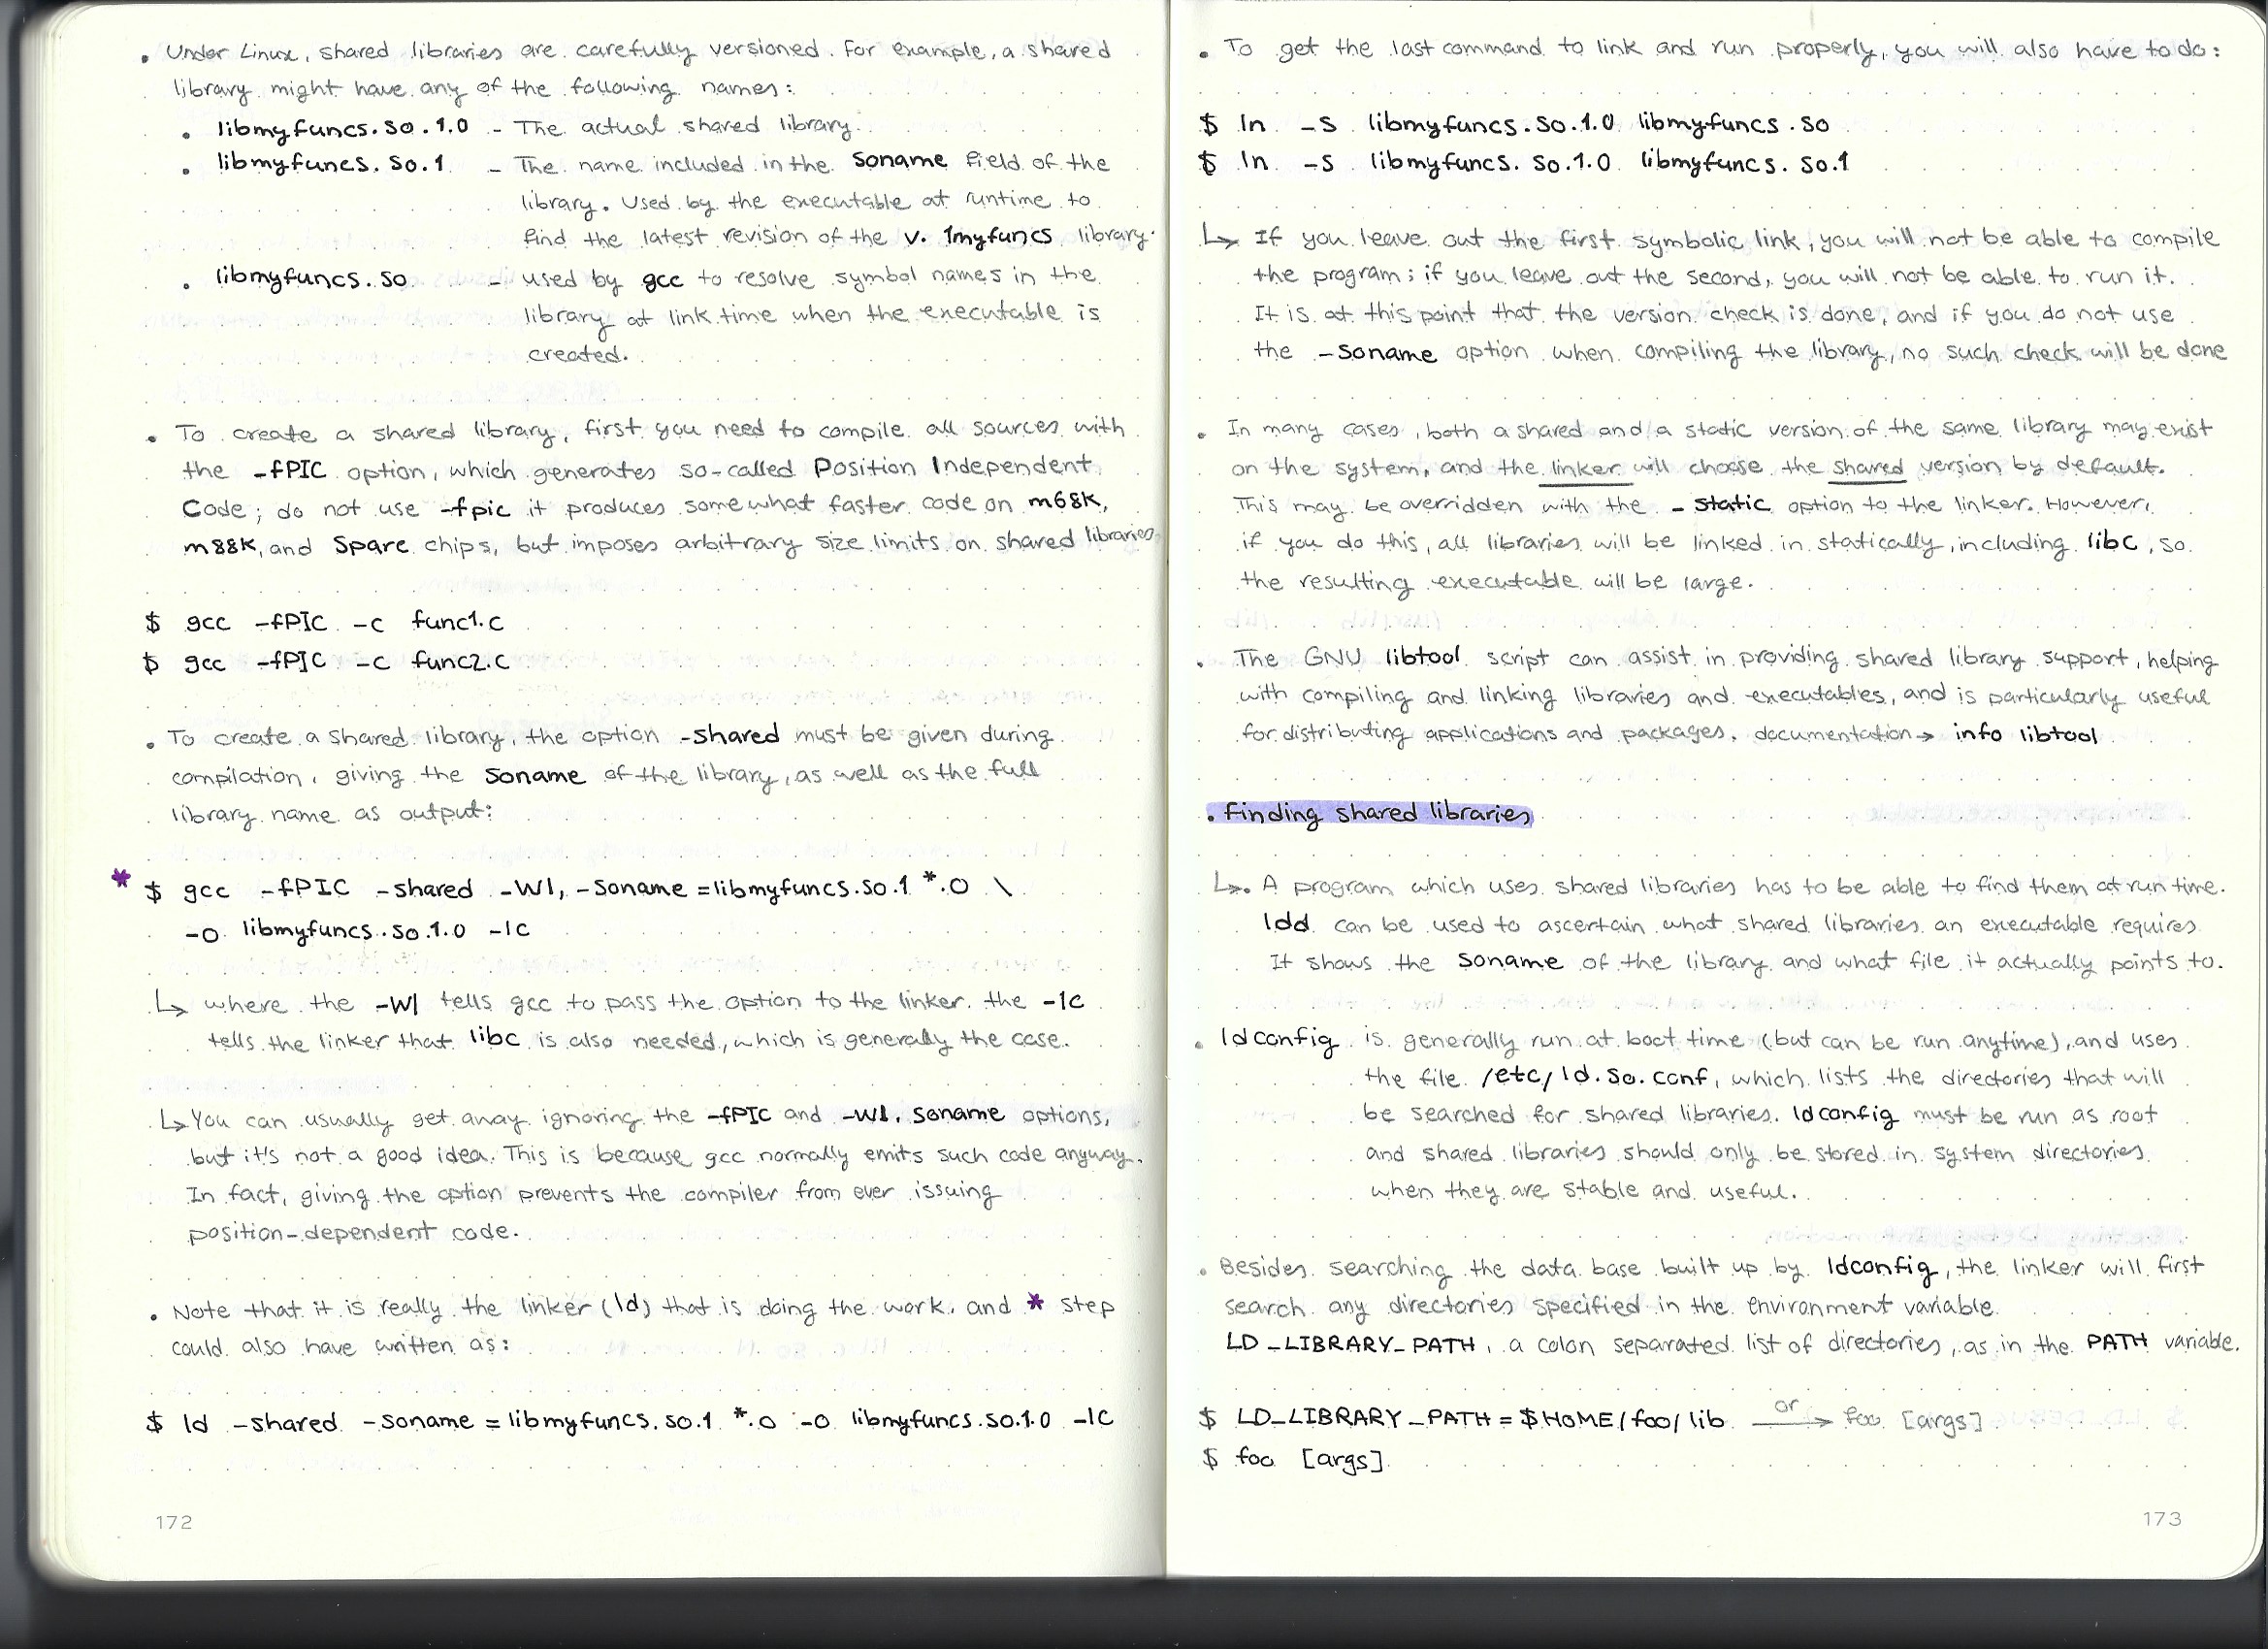 • Under Linux, shared libraries are carefully versioned. For example, a shared
library might have any of the following names:
• libmyfuncs.so.1.0 - The actual shared library.
• libmyfuncs.so.1 - The name included in the soname field of the
library. Used by the executable at runtime to
find the latest revision of the v. 1myfuncs library.
• libmyfuncs.so - used by gcc to resolve symbol names in the
library at link time when the executable is
created.
• To create a shared library, first you need to compile all sources with
the -fPIC option, which generates so-called Position Independent
Code; do not use -fpic it produces somewhat faster code on m68k,
m88k, and Sparc chips, but imposes arbitrary size limits on shared libraries
$ gcc -fPIC -c func1.c
$ gcc -fPIC -c func2.c
• To create a shared library, the option -shared must be given during
compilation, giving the soname of the library, as well as the full
library name as output:
* $ gcc -fPIC -shared -Wl, -soname=libmyfuncs.so.1 *.o \
-o libmyfuncs.so.1.0 -lc
↳ where the -Wl tells gcc to pass the option to the linker. the -lc
tells the linker that libc is also needed, which is generally the case.
↳ You can usually get away ignoring the -fPIC and -Wl, soname options,
but it's not a good idea. This is because gcc normally emits such code anyway.
In fact, giving the option prevents the compiler from ever issuing
position-dependent code.
• Note that it is really the linker (ld) that is doing the work, and * step
could also have written as:
$ ld -shared -soname=libmyfuncs.so.1 *.o -o libmyfuncs.so.1.0 -lc
172
• To get the last command to link and run properly, you will also have to do:
$ ln -s libmyfuncs.so.1.0 libmyfuncs.so
$ ln -s libmyfuncs.so.1.0 libmyfuncs.so.1
↳ If you leave out the first symbolic link, you will not be able to compile
the program; if you leave out the second, you will not be able to run it.
It is at this point that the version check is done, and if you do not use
the -soname option when compiling the library, no such check will be done
• In many cases, both a shared and a static version of the same library may exist
on the system, and the linker will choose the shared version by default.
This may be overridden with the -static option to the linker. However,
if you do this, all libraries will be linked in statically, including libc, so
the resulting executable will be large.
• The GNU libtool script can assist in providing shared library support, helping
with compiling and linking libraries and executables, and is particularly useful
for distributing applications and packages. documentation → info libtool
• Finding shared libraries
↳ • A program which uses shared libraries has to be able to find them at run time.
ldd can be used to ascertain what shared libraries an executable requires
It shows the soname of the library and what file it actually points to.
• ldconfig is generally run at boot time (but can be run anytime), and uses
the file /etc/ld.so.conf, which lists the directories that will
be searched for shared libraries. ldconfig must be run as root
and shared libraries should only be stored in system directories
when they are stable and useful.
• Besides searching the data base built up by ldconfig, the linker will first
search any directories specified in the environment variable
LD_LIBRARY_PATH, a colon separated list of directories, as in the PATH variable.
$ LD_LIBRARY_PATH=$HOME/foo/lib or → foo [args]
$ foo [args]
173